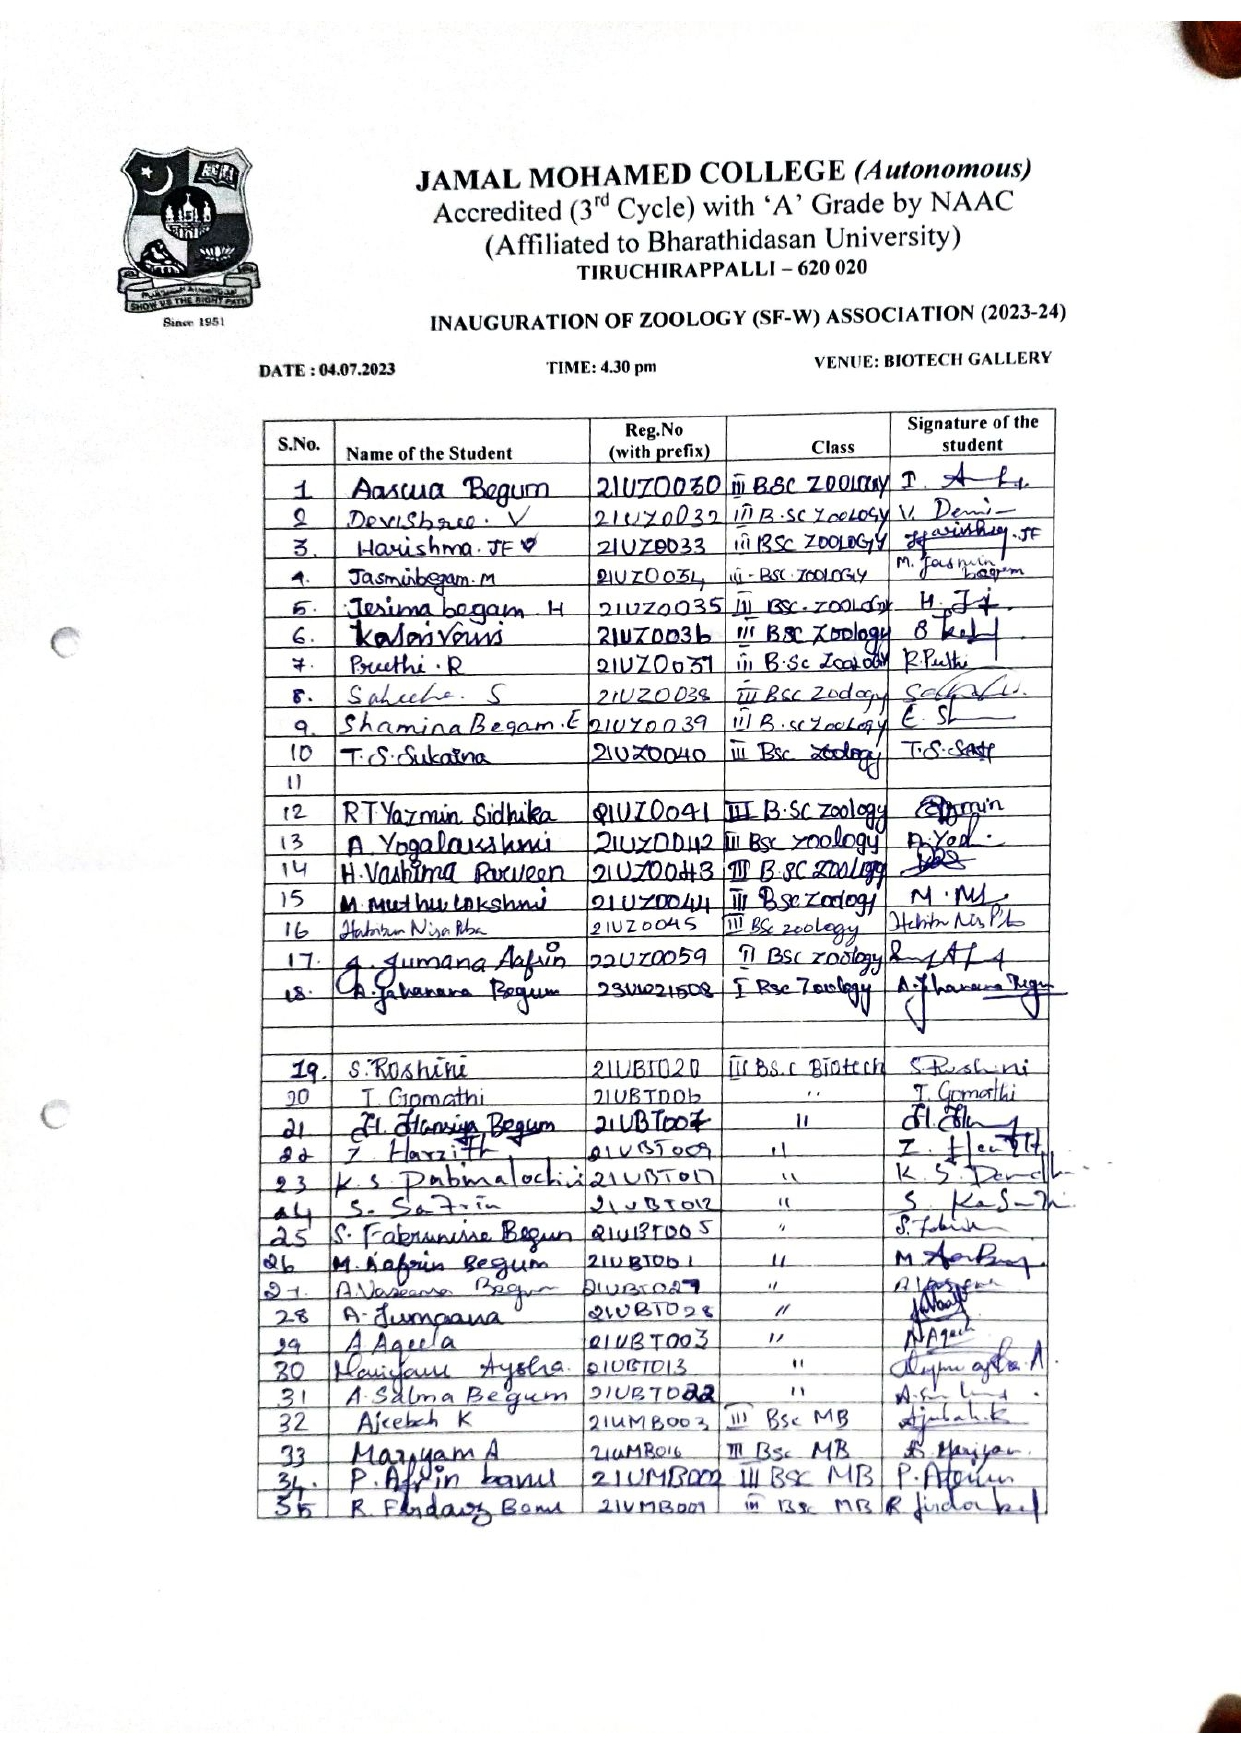 JAMAL MOHAMED COLLEGE (Autonomous)
Accredited (3rd Cycle) with ‘A’ Grade by NAAC
(Affiliated to Bharathidasan University)
TIRUCHIRAPPALLI – 620 020
SHOW US THE RIGHT PATH
Since 1951
INAUGURATION OF ZOOLOGY (SF-W) ASSOCIATION (2023-24)
DATE : 04.07.2023 TIME: 4.30 pm VENUE: BIOTECH GALLERY
S.No. Name of the Student Reg.No (with prefix) Class Signature of the student
1 Begum 21UZ0030 III BSC ZOOLOGY I.
2 Devishree. V 21UZ0032 III B.SC ZOOLOGY V.
3. Harishma. JF 21UZ0033 III BSC ZOOLOGY Harishma.JF
4. Jasminbegam.M 21UZ0034 III-BSC.ZOOLOGY M. Jasmin begam
5. Jesima begam. H 21UZ0035 III BSC. ZOOLOGY H.
6. 21UZ0036 III BSC Zoology
7. Preethi.R 21UZ0037 III B.Sc Zoology R.Prethi
8. S 21UZ0038 III BSC Zoology
9. Shamina Begam.E 21UZ0039 III B.sc Zoology E.
10 T.S.Sukaina 21UZ0040 III Bsc zoology T.S.
11
12 RT Yazmin Sidhika 21UZ0041 III B.SC zoology
13 A. Yogalakshmi 21UZ0042 III Bsc zoology A.
14 H.Vashima Parveen 21UZ0043 III B.SC ZOOLOGY
15 M.Muthulakshmi 21UZ0044 III Bsc zoology M.
16 Nisa 21UZ0045 III BSc zoology
17. J. Jumana Aafrin 22UZ0059 II BSC zoology
18. A.Jahanara Begum I Bsc Zoology A.Jhanara Begu
19. S.Roshini 21UBT020 III BS.c Biotech S.Roshini
20 T. Gomathi 21UBT006 " T. Gomathi
21 H. Hansiya Begum 21UBT007 "
22 Z. Harzith 21UBT009 " Z.
23 K.S. 21UBT017 " K.S.
24 S. Safrin 21UBT012 " S.
25 S. Begum 21UBT005 " S.
26 M. Aafrin Begum 21UBT001 " M.
27. A.Vaseema Begum 21UBT027 "
28 A. Jumaana 21UBT028 "
29 A Aqeela 21UBT003 "
30 Mariyam Aysha. 21UBT013 "
31 A.Salma Begum 21UBT022 "
32 Ajeebah K 21UMB003 III Bsc MB Ajeebah.K
33 Mariyam A 21UMB016 III Bsc MB
34. P. Afrin banu 21UMB002 III BSC MB P.
35 R. Firdawz Banu 21UMB009 III BSc MB R